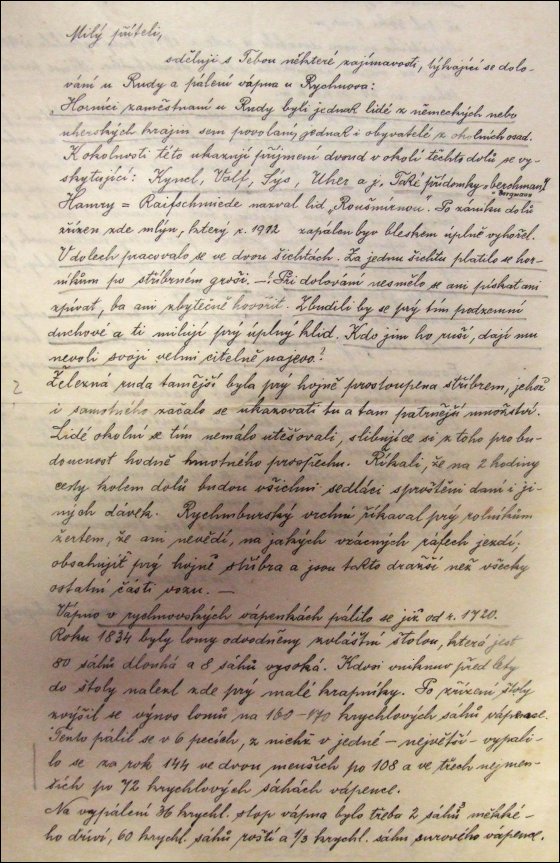 Milý příteli,
sděluji s Tebou některé zajímavosti, týkající se dolo-
vání u Rudy a pálení vápna u Rychnova:
Horníci zaměstnaní u Rudy byli jednak lidé z německých nebo
uherských krajin sem povolaní, jednak i obyvatelé z okolních osad.
K okolnosti této ukazují příjmení dosud v okolí těchto dolů se vy-
skytující: Kyncl, Volf, Sýs, Uher a j. Také přídomky „berchman"
Bergmann
Hamry = Raifschmiede nazval lid „Roušmírnou". Po zániku dolů
zřízen zde mlýn, který r. 1912 zapálen byv bleskem úplně vyhořel.
V dolech pracovalo se ve dvou šichtách. Za jednu šichtu platilo se hor-
níkům po stříbrném groši. –! Při dolování nesmělo se ani pískat ani
zpívat, ba ani zbytečně hovořit. Zbudili by se prý tím podzemní
duchové a ti milují prý úplný klid. Kdo jim ho ruší, dají mu
nevoli svoji velmi citelně najevo!
?
Železná ruda tamější byla prý hojně prostoupena stříbrem, jehož
i samotného začalo se ukazovati tu a tam patrnější množství.
Lidé okolní se tím nemálo utěšovali, slibujíce si z toho pro bu-
doucnost hodně hmotného prospěchu. Říkali, že na 2 hodiny
cesty kolem dolů budou všichni sedláci sproštěni daní i ji-
ných dávek. Rychmburský vrchní říkával prý rolníkům
žertem, že ani nevědí, na jakých vzácných ráfech jezdí,
obsahujíť prý hojně stříbra a jsou takto dražší než všecky
ostatní části vozu. —
Vápno v rychnovských vápenkách pálilo se již od r. 1720.
Roku 1834 byly lomy odvodněny zvláštní štolou, která jest
80 sáhů dlouhá a 8 sáhů vysoká. Kdosi vniknuv před lety
do štoly nalezl zde prý malé krapníky. Po zřízení štoly
zvýšil se výnos lomů na 160-170 krychlových sáhů vápence.
Tento pálil se v 6 pecích, z nichž v jedné – největší – vypáli-
lo se za rok 144 ve dvou menších po 108 a ve třech nejmen-
ších po 72 krychlových sáhách vápence.
Na vypálení 36 krychl. stop vápna bylo třeba 2 sáhů měkké-
ho dříví, 60 krychl. sáhů roští a 1/3 krychl. sáhu surového vápence.